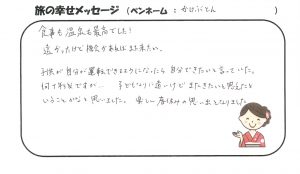 旅の幸せメッセージ (ペンネーム : かけぶとん )
食事も温泉も最高でした!
遠かったけど機会があればまた来たい。
子供が自分が運転できるようになったら自分で来たいと言っていた。
何年後ですか… 子どもなりに遠いけどまた来たいと思えたと
いうことかなと思いました。楽しい夏休みの思い出となりました